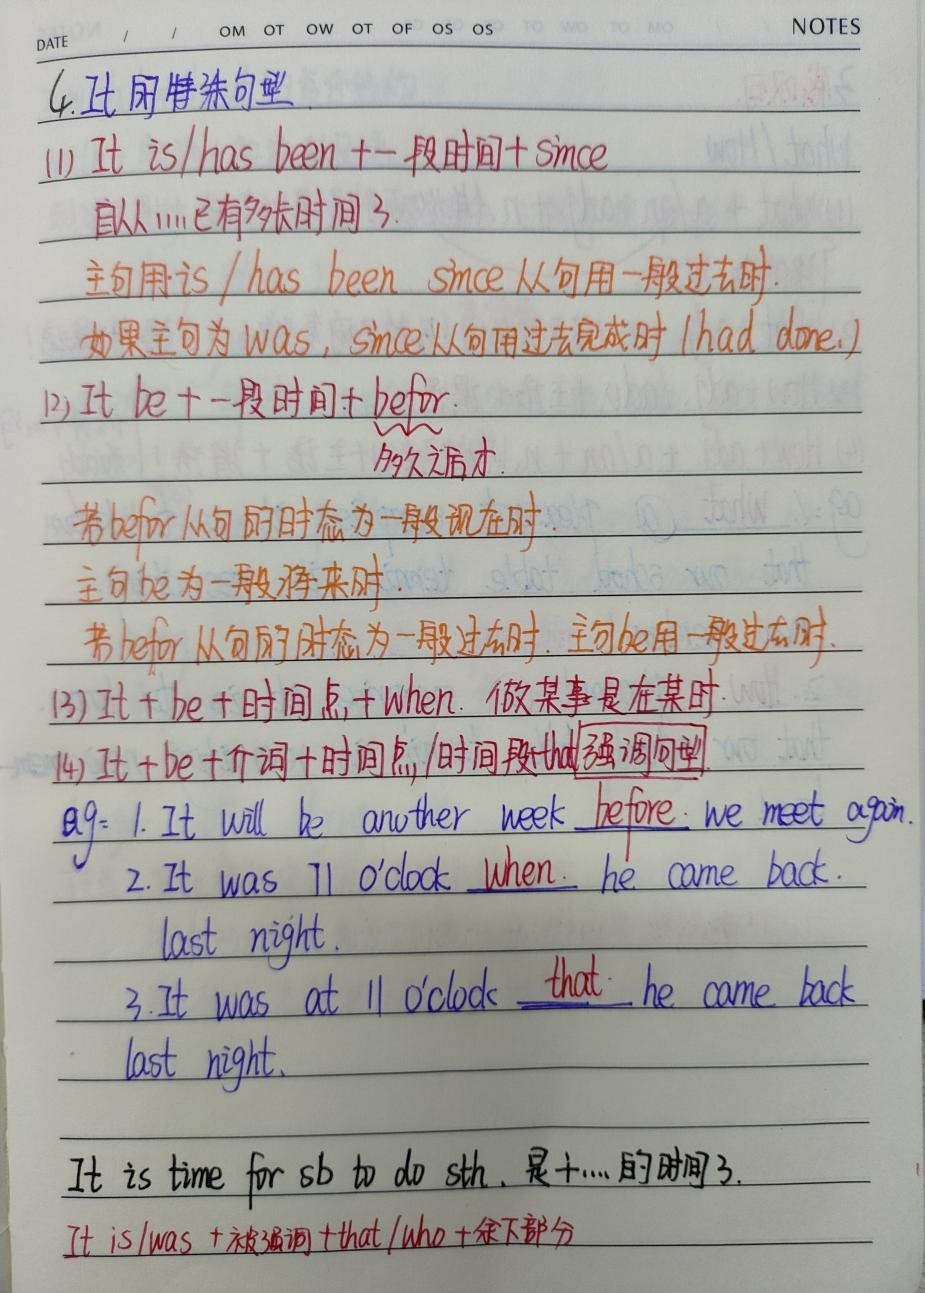 DATE / / OM OT OW OT OF OS OS NOTES
4.It 的特殊句型
(1) It is/has been +一段时间+ since
自从....已有多长时间了.
主句用is/has been since从句用一般过去时.
如果主句为was, since从句用过去完成时(had done.)
(2) It be +一段时间+ befor.
多久之后才.
若befor从句的时态为一般现在时.
主句be为一般将来时.
若befor从句的时态为一般过去时.主句be用一般过去时.
(3) It + be +时间点+when. 做某事是在某时.
(4) It + be +个词+时间点/时间段that强调句型
eg: 1. It will be another week before. we meet again.
2. It was 11 o'clock when. he came back.
last night.
3. It was at 11 o'clock that. he came back
last night.
It is time for sb to do sth. 是十....的时间了.
It is/was +被强调+that/who+余下部分